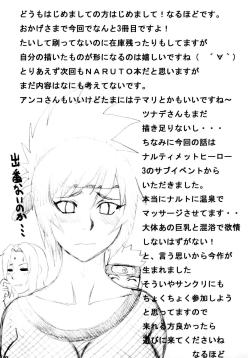 どうもはじめましての方はじめまして！なるほどです。
おかげさまで今回でなんと3冊目ですよ！
たいして刷ってないのに在庫残ったりもしてますが
自分の描いたものが形になるのは嬉しいですね（ ´∀｀）
とりあえず次回もＮＡＲＵＴＯ本だと思いますが
まだ内容はなにも考えてないです。
アンコさんもいいけどたまにはテマリとかもいいですね～
ツナデさんもまだ
描き足りないし・・・
ちなみに今回の話は
ナルティメットヒーロー
3のサブイベントから
いただきました。
本当にナルトに温泉で
マッサージさせてます・・
大体あの巨乳と混浴で欲情
しないはずがない！
と、言う思いから今作が
生まれました
そういやサンクリにも
ちょくちょく参加しよう
と思ってますので
来れる方良かったら
遊びに来てくださいね
なるほど
出番ないのか…